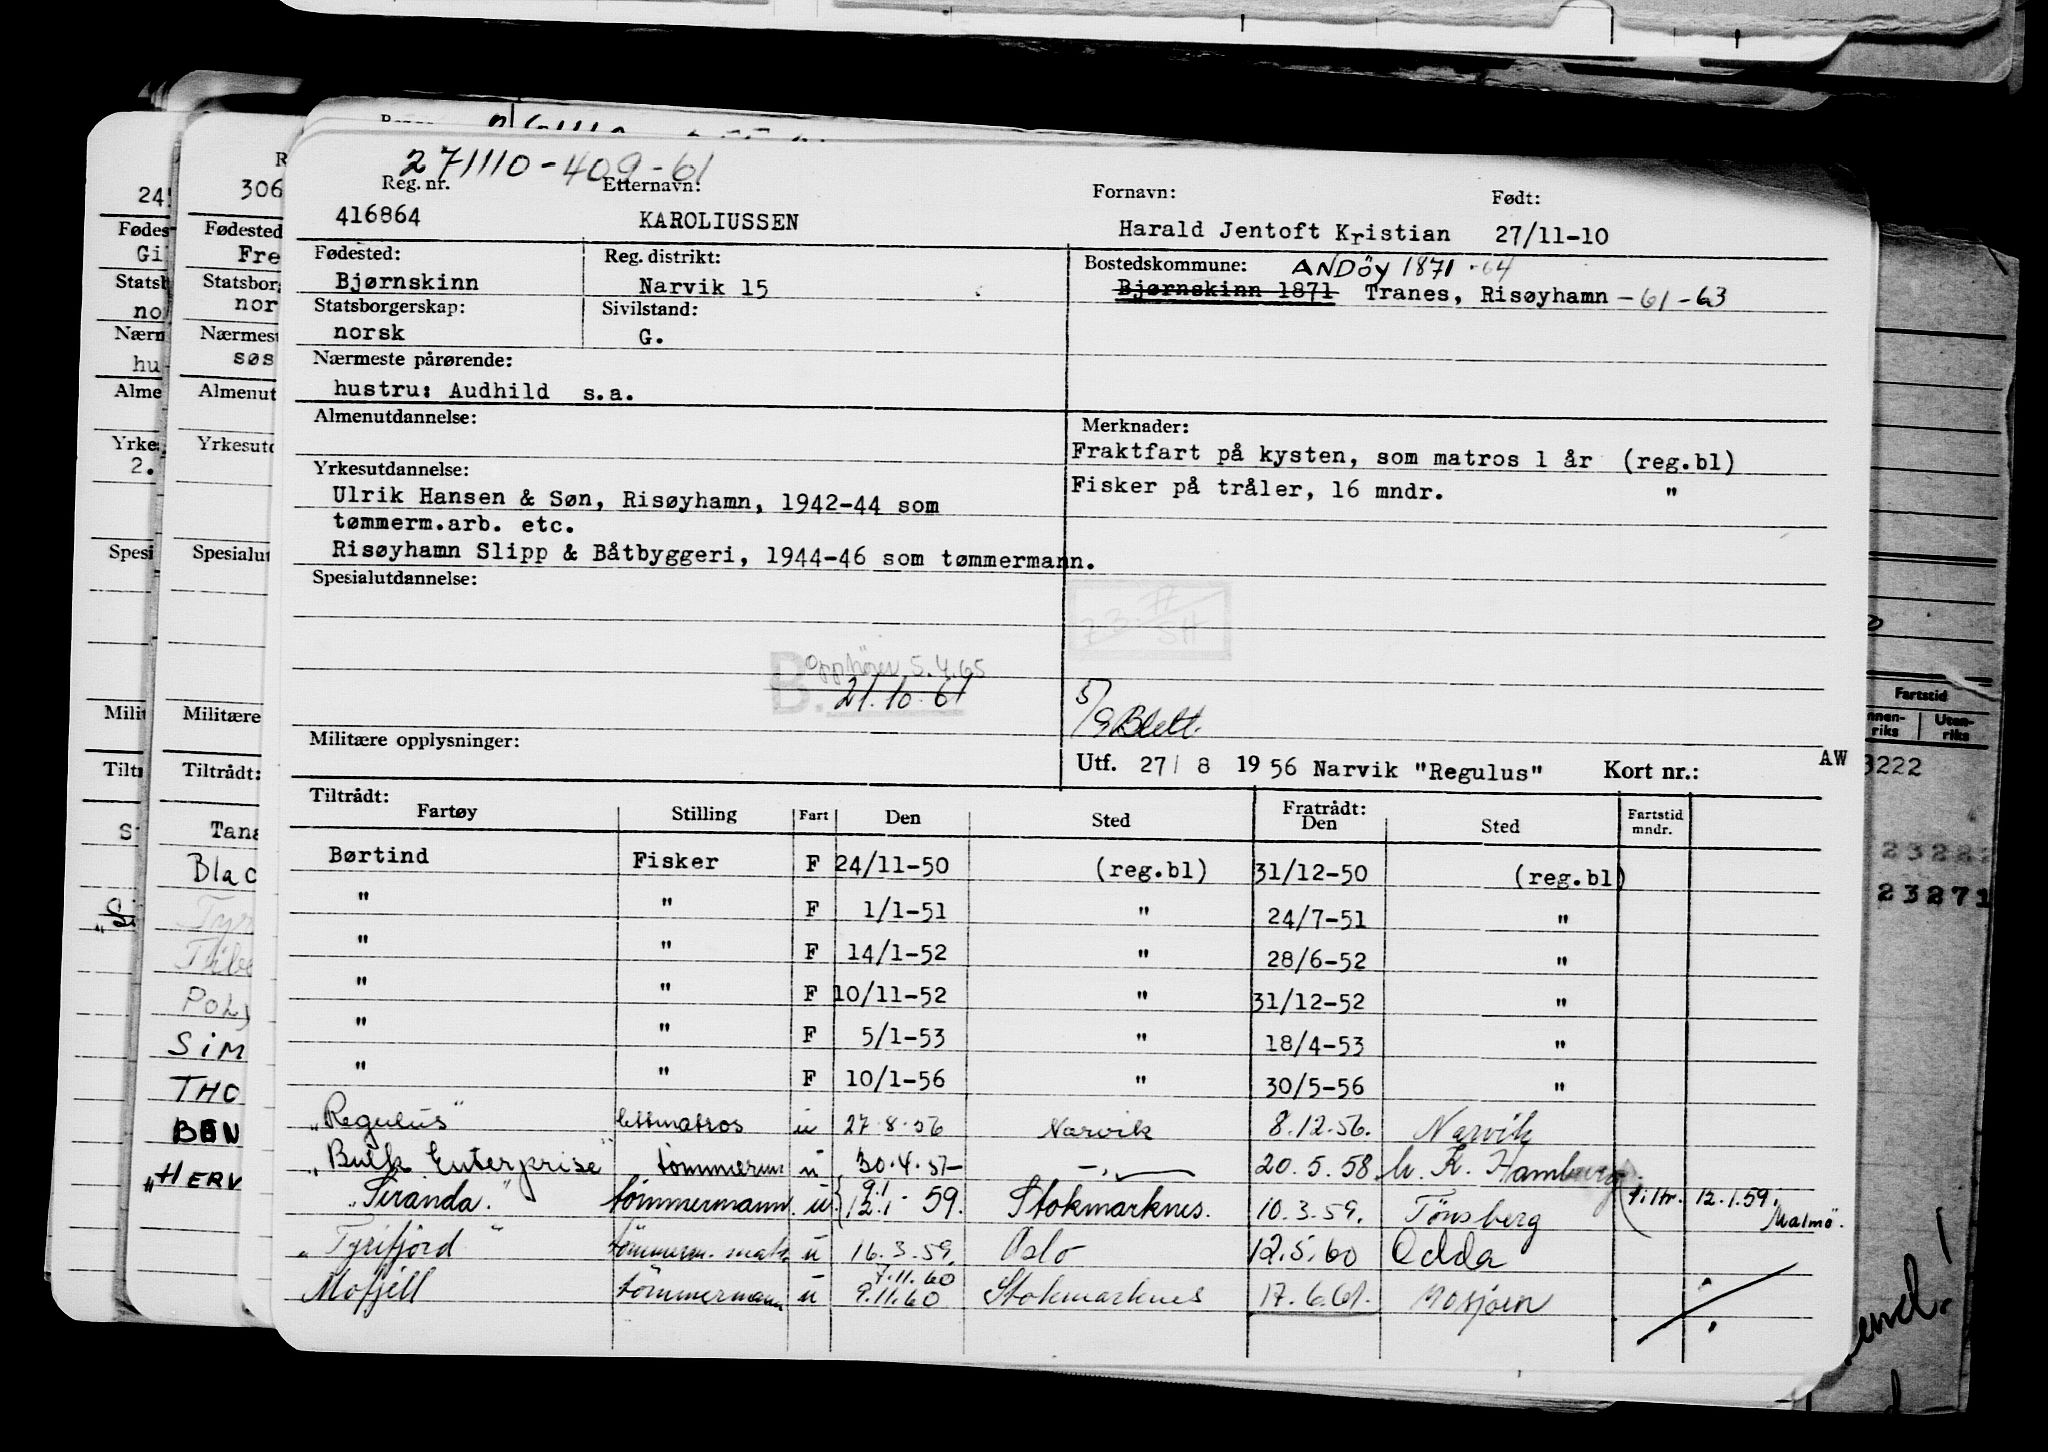 271110-409-61
Reg. nr. Etternavn: Fornavn: Født:
416864 KAROLIUSSEN Harald Jentoft Kristian 27/11-10
Fødested: Reg. distrikt: Bostedskommune: ANDÖY 1871 -64
Bjørnskinn Narvik 15 Bjørnskinn 1871 Tranes, Risøyhamn -61-63
Statsborgerskap: Sivilstand:
norsk G.
Nærmeste pårørende:
hustru: Audhild s.a.
Almenutdannelse: Merknader:
Fraktfart på kysten, som matros 1 år (reg.bl)
Yrkesutdannelse:
Fisker på tråler, 16 mndr. "
Ulrik Hansen & Søn, Risøyhamn, 1942-44 som
tømmerm.arb. etc.
Risøyhamn Slipp & Båtbyggeri, 1944-46 som tømmermann.
Spesialutdannelse:
Opphører 5.4.65
B. 21.10.61
5/9 Blett.
Militære opplysninger: Utf. 27/ 8 1956 Narvik "Regulus" Kort nr.: AW
Tiltrådt: Fratrådt:
Fartøy Stilling Fart Den Sted Den Sted Fartstid mndr.
Børtind Fisker F 24/11-50 (reg.bl) 31/12-50 (reg.bl)
" " F 1/1-51 " 24/7-51 "
" " F 14/1-52 " 28/6-52 "
" " F 10/11-52 " 31/12-52 "
" " F 5/1-53 " 18/4-53 "
" " F 10/1-56 " 30/5-56 "
"Regulus" lettmatros u 27.8.56 Narvik 8.12.56. Narvik
"Bulk Enterprise" tömmerm u 30.4.57 -"- 20.5.58 Hamburg
"Siranda." tömmermann. u. 9.1 12.1 59. Stokmarknes. 10.3.59. Tönsberg (tiltr. 12.1.59. Malmö.
"Tyrifjord" tömmerm. mats u 16.3.59. Oslo 12.5.60 Odda
Mofjell tömmermann u 7.11.60 9.11.60 Stokmarknes 17.6.61. Mosjøen